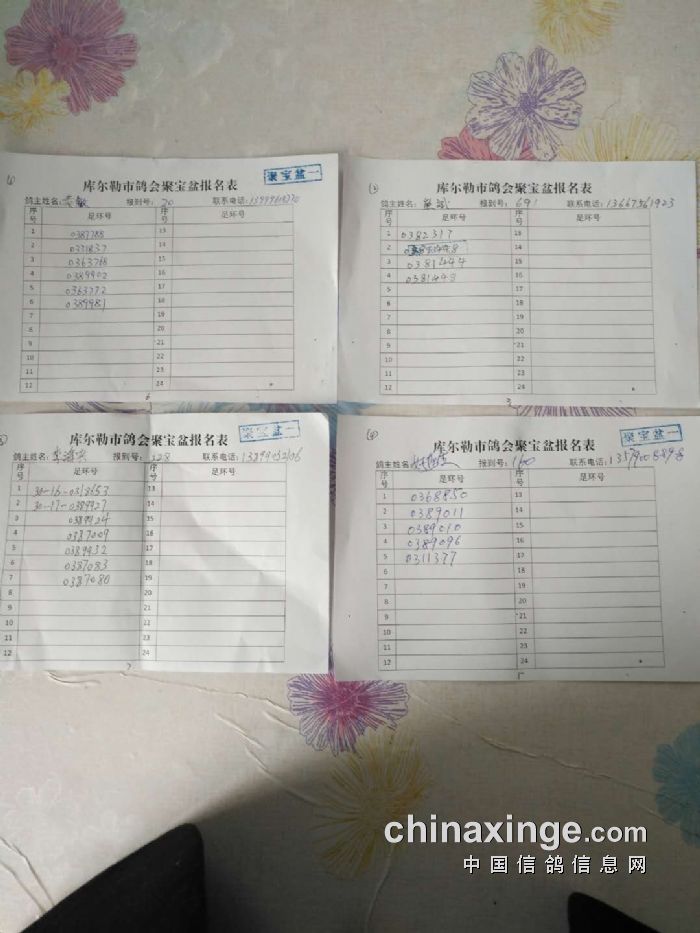 聚宝盆一
库尔勒市鸽会聚宝盆报名表
鸽主姓名: 报到号: 20 联系电话:
序号 足环号 序号 足环号
1 0387788 13
2 0371837 14
3 0363768 15
4 0389902 16
5 0363772 17
6 0389981 18
7 19
8 20
9 21
10 22
11 23
12 24
6
聚宝盆一
库尔勒市鸽会聚宝盆报名表
鸽主姓名: 报到号: 691 联系电话: 13667561923
序号 足环号 序号 足环号
1 0382317 13
2 14
3 0381444 15
4 0381448 16
5 17
6 18
7 19
8 20
9 21
10 22
11 23
12 24
3
聚宝盆一
库尔勒市鸽会聚宝盆报名表
鸽主姓名: 报到号: 328 联系电话: 13899052106
序号 足环号 序号 足环号
1 30-16-0318653 13
2 30-17-0389927 14
3 0389924 15
4 0387009 16
5 0389932 17
6 0387083 18
7 0387080 19
8 20
9 21
10 22
11 23
12 24
7
④
聚宝盆一
库尔勒市鸽会聚宝盆报名表
鸽主姓名: 报到号: 160 联系电话:
序号 足环号 序号 足环号
1 0368850 13
2 0389011 14
3 0389010 15
4 0389096 16
5 0311377 17
6 18
7 19
8 20
9 21
10 22
11 23
12 24
5
chinaxinge.com
中国信鸽信息网